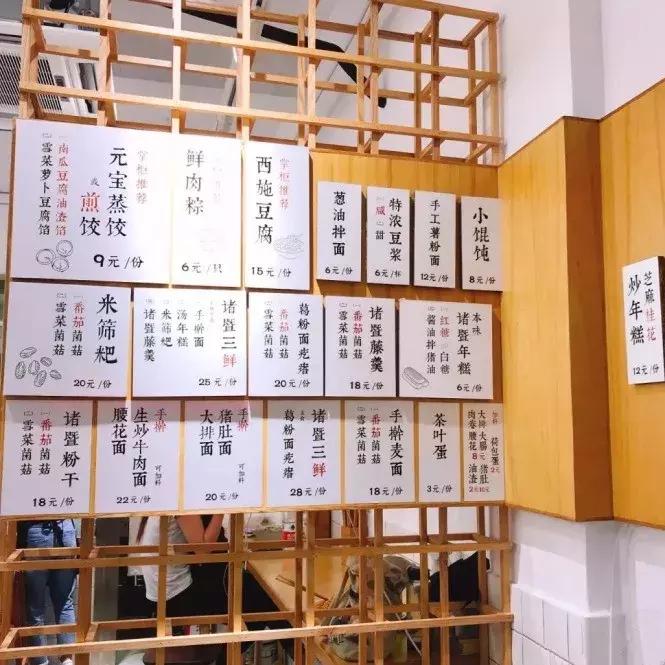 掌柜推荐
元宝蒸饺
或
煎饺
南瓜豆腐油渣馅
雪菜萝卜豆腐馅
9元/份
鲜肉粽
6元/只
掌柜推荐
西施豆腐
15元/份
葱油拌面
6元/份
特浓豆浆
咸
甜
6元/杯
手工薯粉面
12元/份
小馄饨
8元/份
米筛粑
番茄菌菇
雪菜菌菇
20元/份
诸暨三鲜
手擀面
汤年糕
米筛粑
诸暨藤羹
25元/份
葛粉面疙瘩
番茄菌菇
雪菜菌菇
20元/份
诸暨藤羹
番茄菌菇
雪菜菌菇
18元/份
本味
诸暨年糕
白糖
红糖
酱油拌猪油
6元/份
诸暨粉干
番茄菌菇
雪菜菌菇
18元/份
手擀
生炒牛肉面
腰花面
可加料
22元/份
手擀
猪肚面
大排面
可加料
20元/份
诸暨三鲜
葛粉面疙瘩
28元/份
手擀麦面
番茄菌菇
雪菜菌菇
18元/份
茶叶蛋
3元/份
加料
荷包蛋2元
大排 大肠 猪肚10元
肉卷 腰花8元
油渣2元
芝麻桂花
炒年糕
12元/份